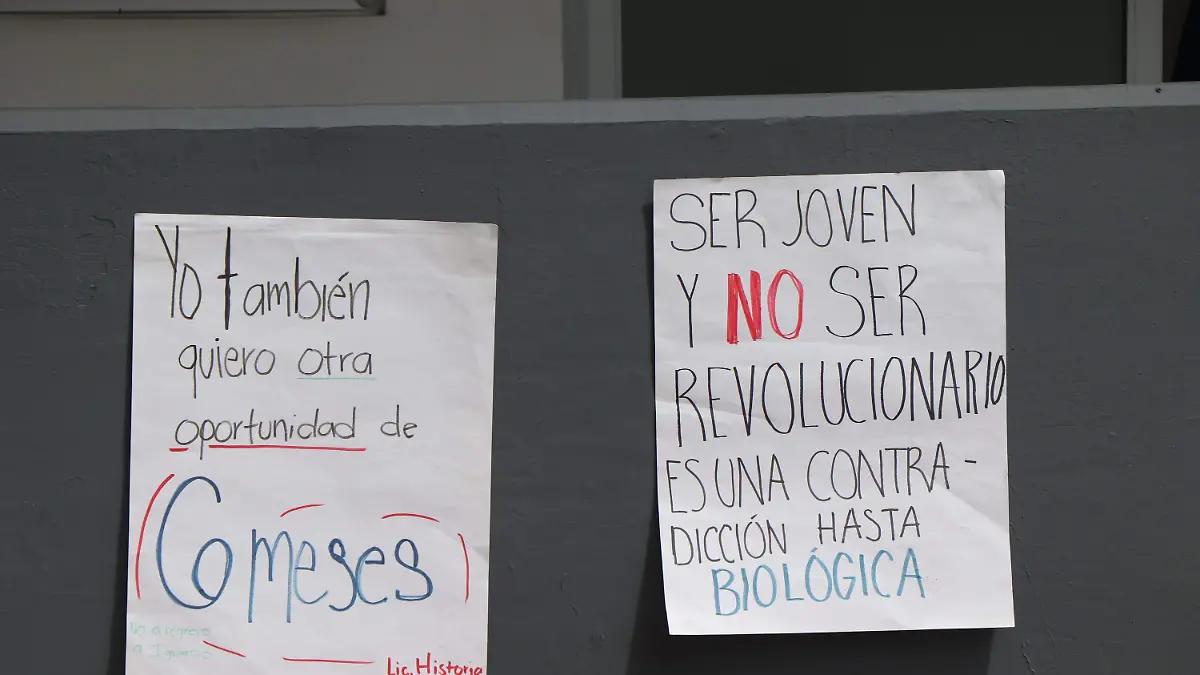 Yo también
quiero otra
oportunidad de
6 meses
Lic. Historia
SER JOVEN
Y NO SER
REVOLUCIONARIO
ES UNA CONTRA-
DICCIÓN HASTA
BIOLÓGICA